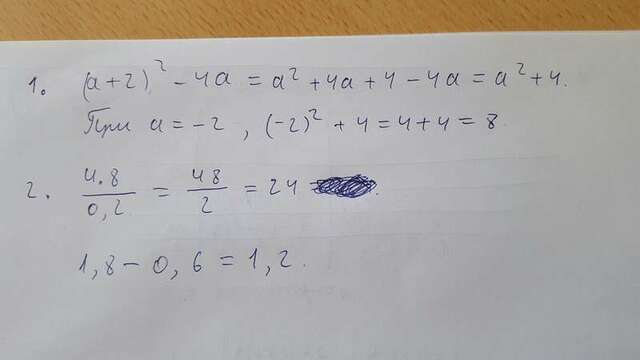 1. (a+2)² - 4a = a² + 4a + 4 - 4a = a² + 4.
При a = -2, (-2)² + 4 = 4 + 4 = 8.
2. 4.8/0,2 = 48/2 = 24
1,8 - 0,6 = 1,2.